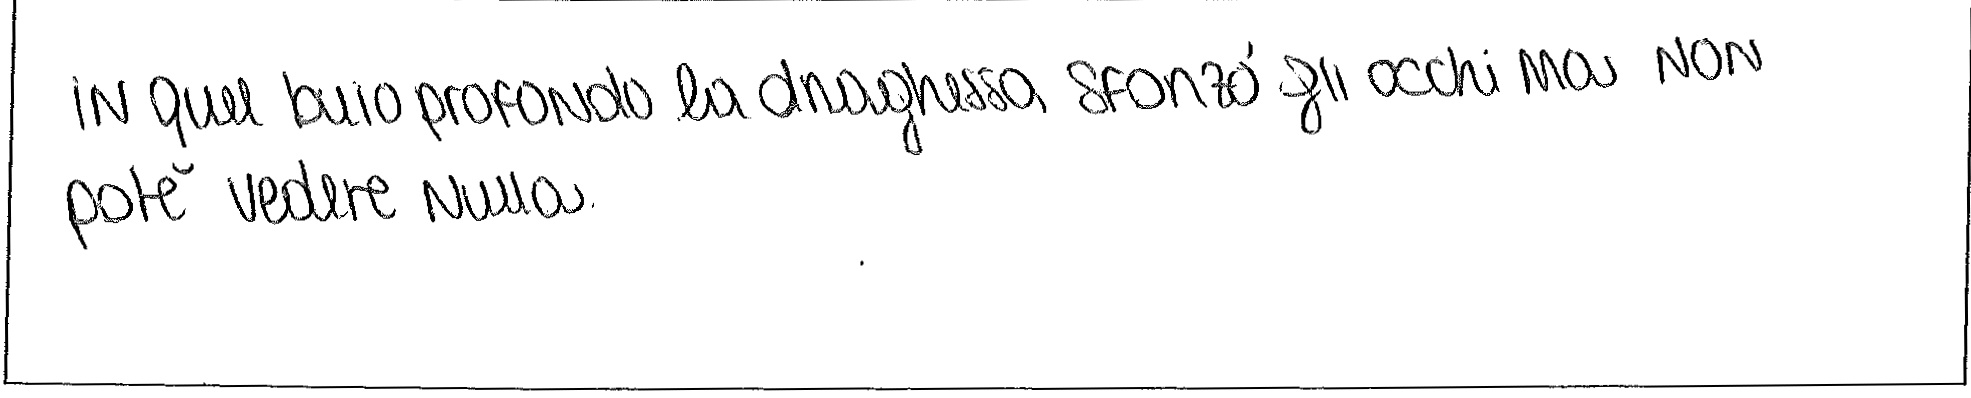 In quel buio profondo la draghessa sforzó gli occhi ma non
potě vedere nulla.